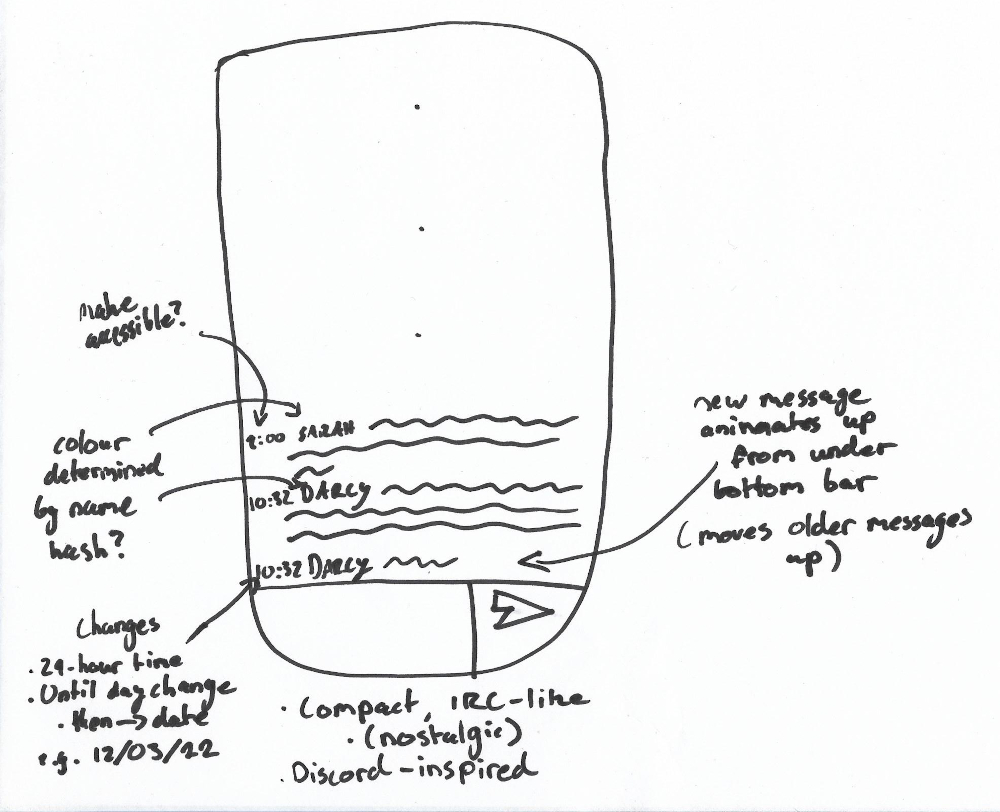 make
accessible?
9:00 SARAH
colour
determined
by name
hash?
10:32 DARCY
10:32 DARCY
new message
animates up
from under
bottom bar
(moves older messages
up)
Changes
. 24-hour time
. Until day change
. then → date
e.g. 12/03/22
. Compact, IRC-like
. (nostalgic)
. Discord-inspired